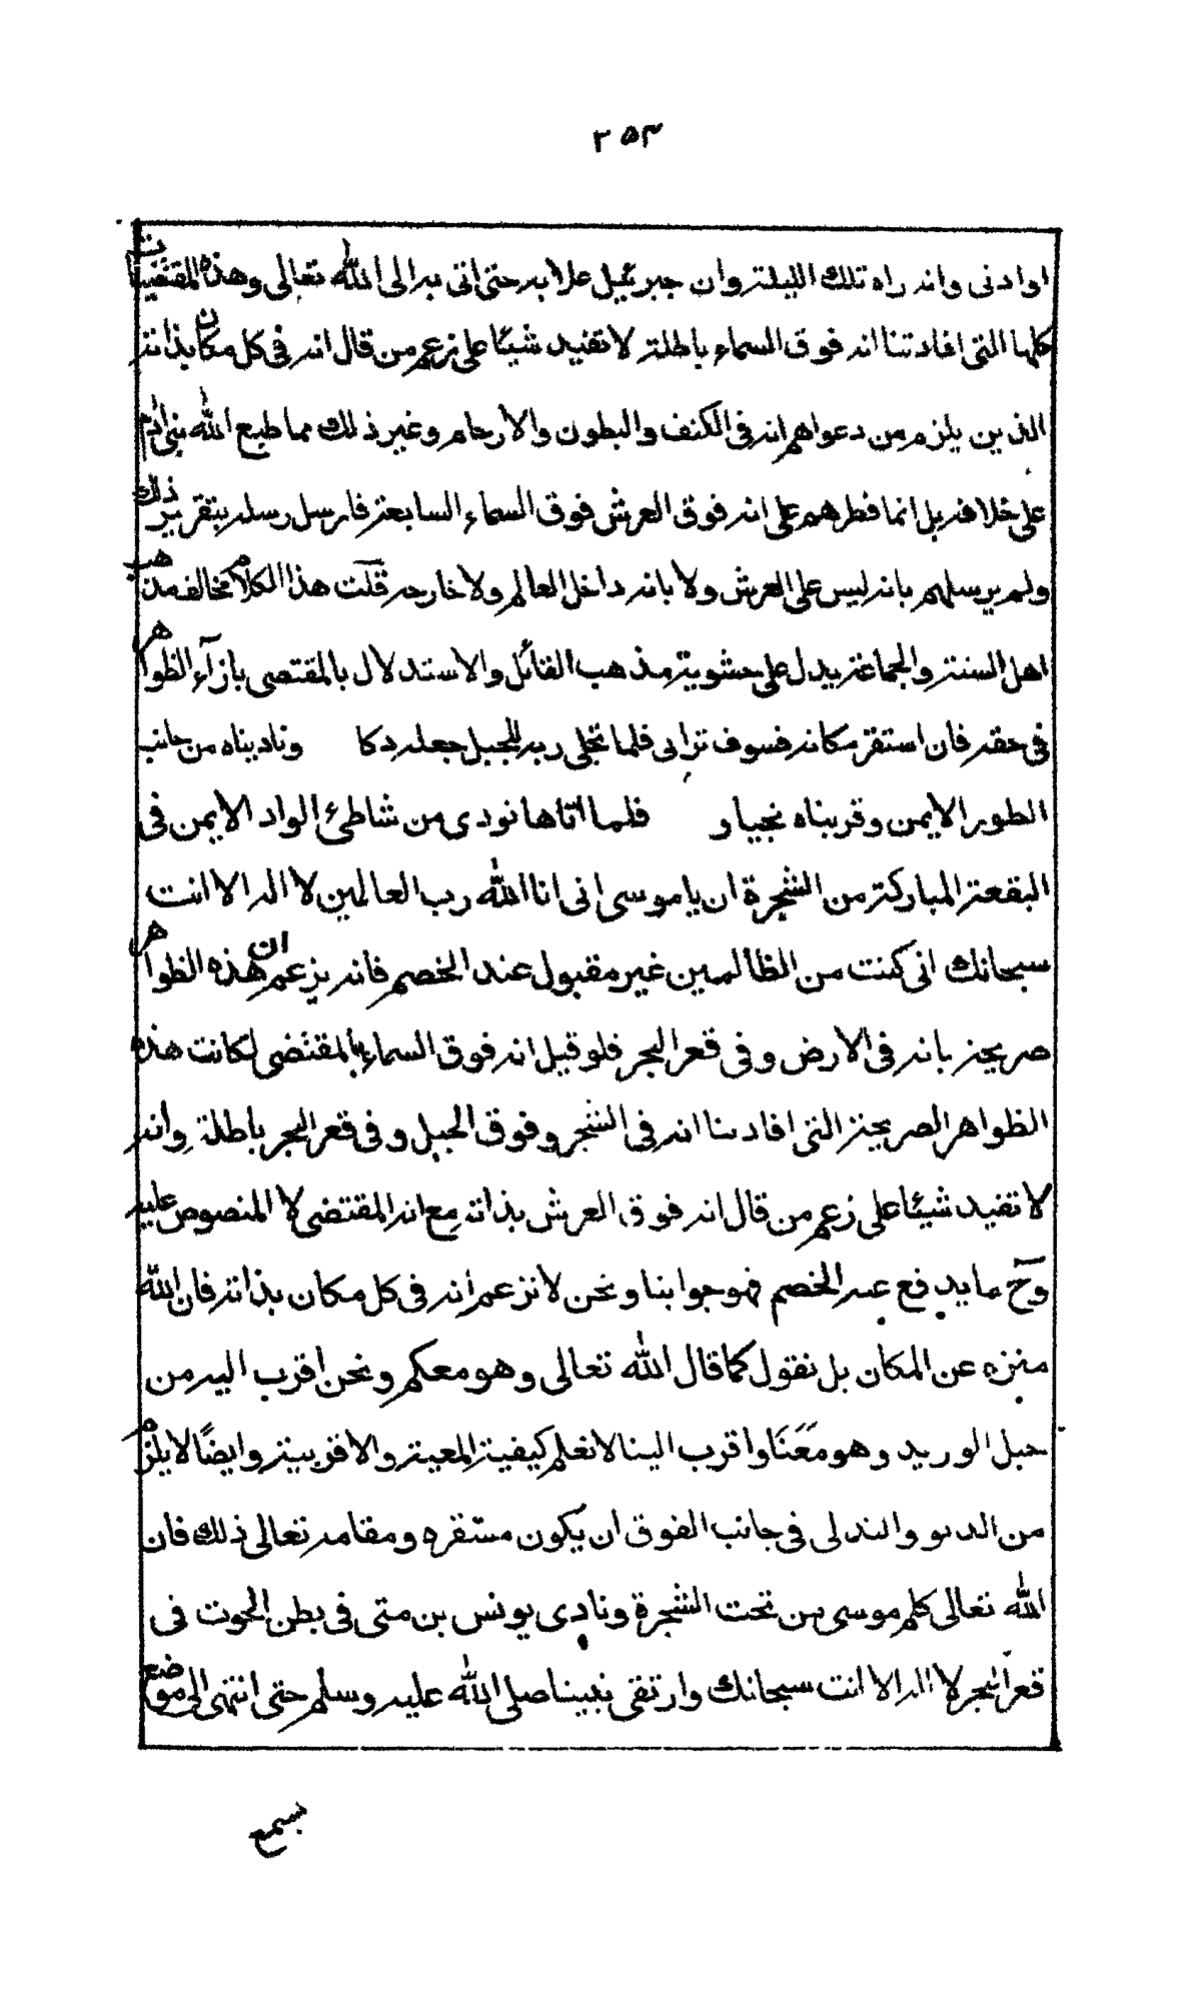 ٢٥٣
او ادنى وانه راه تلك الليلة وان جبرئيل علا به حتى اتى به الى الله تعالى وهذه المقتضيات
كلها التى افادتنا انه فوق السماء باطلة لا تفيد شيئا على زعم من قال انه فى كل مكان بذاته
الذين يلزم من دعواهم انه فى الكنف والبطون والارحام وغير ذلك مما طبع الله بنى ادم
على خلافه بل انما فطرهم على انه فوق العرش فوق السماء السابعة فارسل رسله بتقرير ذلك
ولم يرسلهم بانه ليس على العرش ولا بانه داخل العالم ولا خارجه قلت هذا الكلام مخالف مذهب
اهل السنة والجماعة يدل على حشوية مذهب القائل والاستدلال بالمقتصى بازآء الظواهر
فى حقه فان استقر مكانه فسوف ترانى فلما تجلى ربه للجبل جعله دكا وناديناه من جانب
الطور الايمن وقربناه نجيا و فلما اتاها نودى من شاطئ الواد الايمن فى
البقعة المباركة من الشجرة ان ياموسى انى انا الله رب العالمين لا اله الا انت
سبحانك انى كنت من الظالمين غير مقبول عند الخصم فانه يزعم ان هذه الظواهر
صريحة بانه فى الارض وفى قعر البحر فلو قيل انه فوق السماء بالمقتضى لكانت هذه
الظواهر الصريحة التى افادتنا انه فى الشجر وفوق الجبل وفى قعر البحر باطلة وانه
لا تفيد شيئا على زعم من قال انه فوق العرش بذاته مع انه المقتضى لا المنصوص عليه
وحٓ ما يدفع عبر الخصم فهو جوابنا ونحن لا نزعم انه فى كل مكان بذاته فان الله
منزه عن المكان بل نقول كما قال الله تعالى وهو معكم ونحن اقرب اليه من
حبل الوريد وهو مَعَنَا واقرب الينا لا نعلم كيفية المعية والاقربية وايضًا لا يلزم
من الدنو والتدلى فى جانب الفوق ان يكون مستقره ومقامه تعالى ذلك فان
الله تعالى كلم موسى من تحت الشجرة ونادى يونس بن متى فى بطن الحوت فى
قعر البحر لا اله الا انت سبحانك وارتقى نبينا صلى الله عليه وسلم حتى انتهى الى موضع
يسمع